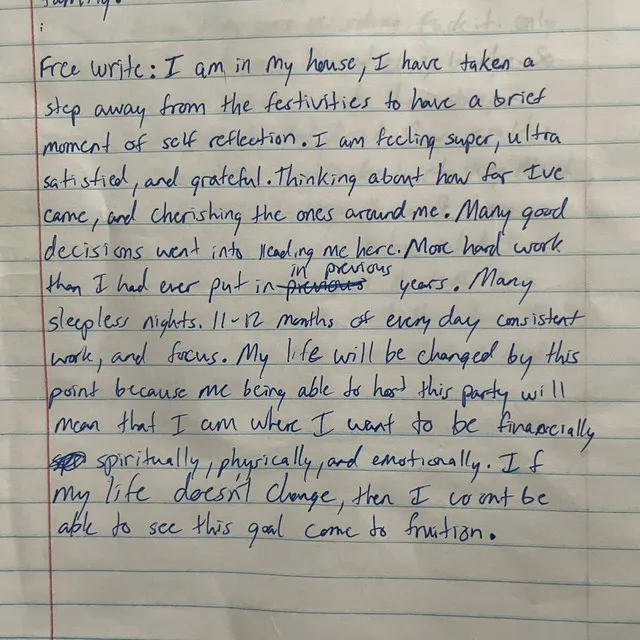 Free write: I am in my house, I have taken a
step away from the festivities to have a brief
moment of self reflection. I am feeling super, ultra
satisfied, and grateful. Thinking about how far I've
came, and cherishing the ones around me. Many good
decisions went into leading me here. More hard work
than I had ever put in in previous years. Many
sleepless nights. 11-12 months of every day consistent
work, and focus. My life will be changed by this
point because me being able to host this party will
mean that I am where I want to be financially
spiritually, physically, and emotionally. If
my life doesn't change, then I woont be
able to see this goal come to fruition.